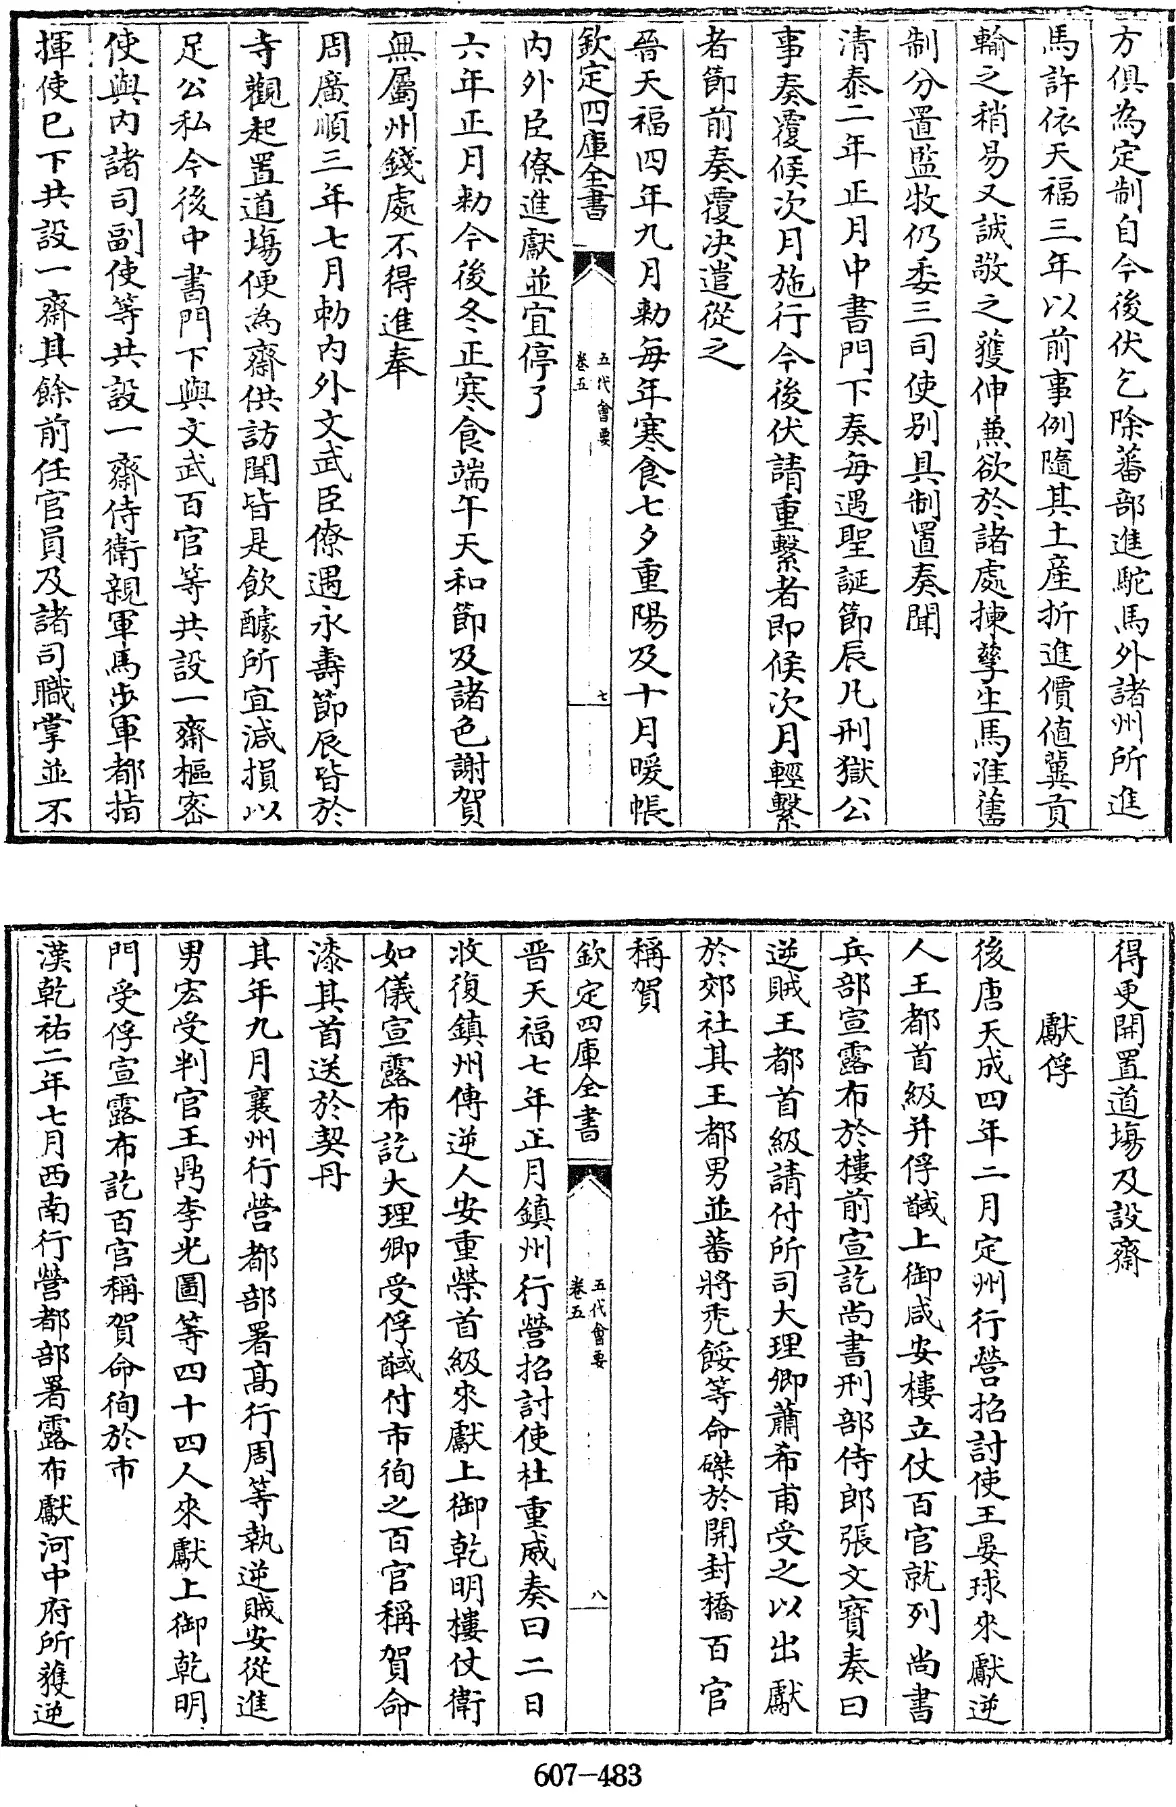 方俱為定制自今後伏乞除蕃部進駝馬外諸州所進
馬許依天福三年以前事例隨其土産折進價值冀貢
輸之稍易又誠敬之獲伸兼欲於諸處揀孳生馬准舊
制分置監牧仍委三司使别具制置奏聞
清泰二年正月中書門下奏每遇聖誕節辰凡刑獄公
事奏覆候次月施行今後伏請重繫者即候次月輕繫
者節前奏覆决遣從之
晉天福四年九月勅每年寒食七夕重陽及十月暖帳
欽定四庫全書
五代會要
卷五
七
内外臣僚進獻並宜停了
六年正月勅今後冬正寒食端午天和節及諸色謝賀
無屬州錢處不得進奉
周廣順三年七月勅内外文武臣僚遇永壽節辰皆於
寺觀起置道塲便為齋供訪聞皆是飲醵所宜減損以
足公私今後中書門下與文武百官等共設一齋樞密
使與内諸司副使等共設一齋侍衛親軍馬步軍都指
揮使已下共設一齋其餘前任官員及諸司職掌並不
得更開置道塲及設齋
獻俘
後唐天成四年二月定州行營招討使王晏球來獻逆
人王都首級并俘馘上御咸安樓立仗百官就列尚書
兵部宣露布於樓前宣訖尚書刑部侍郎張文寶奏曰
逆賊王都首級請付所司大理卿蕭希甫受之以出獻
於郊社其王都男並蕃將秃餒等命磔於開封橋百官
稱賀
欽定四庫全書
五代會要
卷五
八
晉天福七年正月鎮州行營招討使杜重威奏曰二日
收復鎮州傳逆人安重榮首級來獻上御乾明樓仗衛
如儀宣露布訖大理卿受俘馘付市徇之百官稱賀命
漆其首送於契丹
其年九月襄州行營都部署高行周等執逆賊安從進
男宏受判官王鼎李光圖等四十四人來獻上御乾明
門受俘宣露布訖百官稱賀命徇於市
漢乾祐二年七月西南行營都部署露布獻河中府所獲逆
607-483